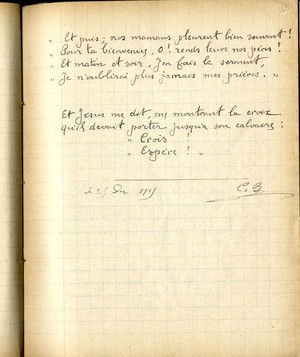 " Et puis; nos mamans pleurent bien souvent !
" Pour ta bienvenue, O ! rends leurs nos pères !
" Et matin et soir, j'en fais le serment,
" Je n'oublirai plus jamais mes prières. "
Et Jesus me dit, me montrant la croix
qu'il devait porter jusqu'a son calvaire :
" Crois !
" Espère ! "
le 25 Dec 1915